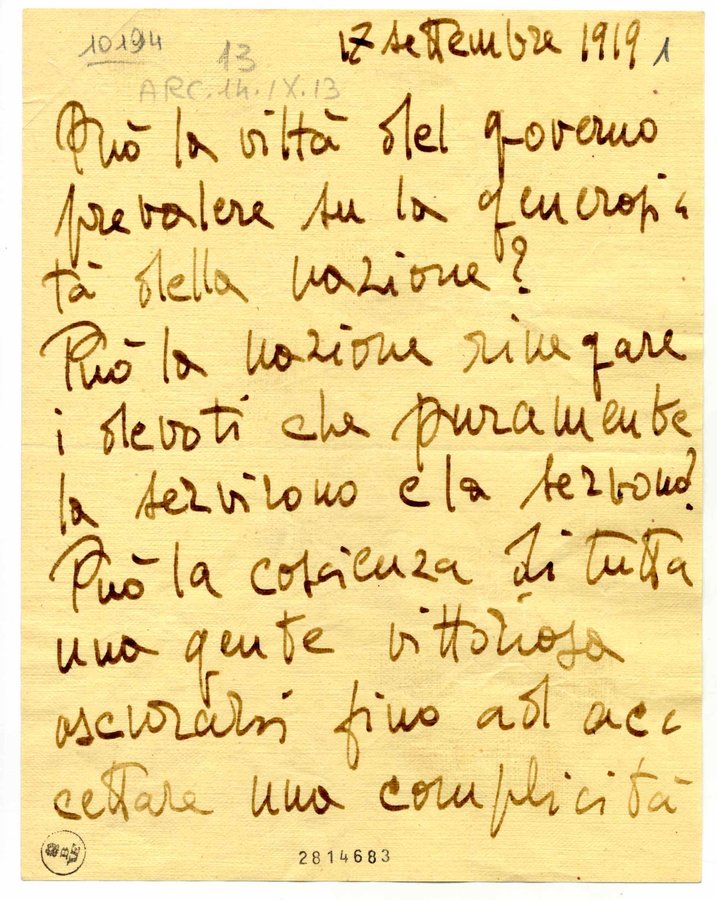 10194
17 settembre 1919 1
13
ARC.14.IX.13
Può la viltà del governo
prevalere su la generosi-
tà della nazione?
Può la nazione rinegare
i devoti che puramente
la servirono e la servono?
Può la coscienza di tutta
una gente vittoriosa
oscurarsi fino ad acc-
cettare una complicità
2814683